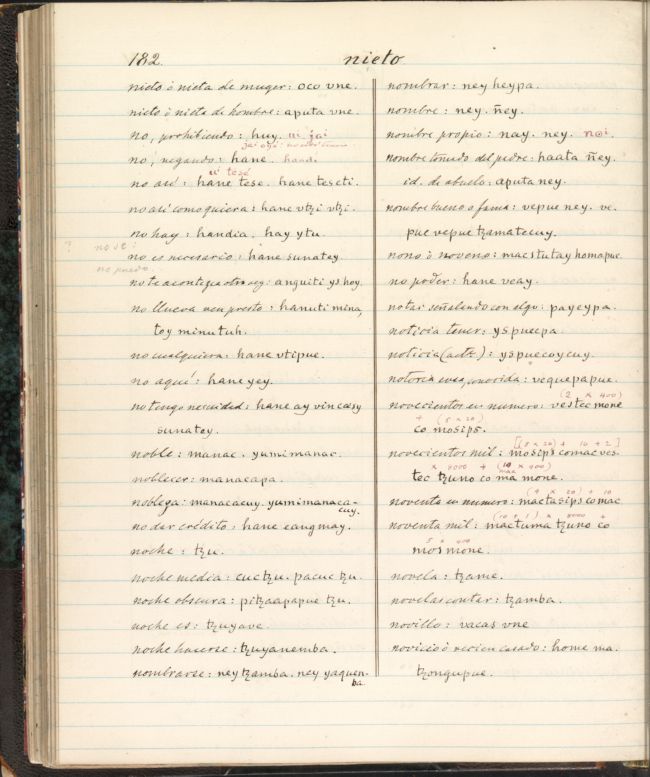 182.
nieto
nieto ò nieta de muger: oco vne.
nieto ò nieta de hombre: aputa vne.
no, prohibiendo: huy. ui jai
no, negando: hane.
ui tese
no así: hane tese. hane teseti.
no así como quiera: hane vtzi vtzi.
no hay: handia. hay ytu.
? no se:
no es necesario: hane sunatey
no puedo.
no te acontezca otra vez: anguiti ys hoy.
no llueva aun presto: hanuti mina,
toy minutuh.
no cualquiera: hane vtipue.
no aquí: hane yey.
no tengo necesidad: hane ay vincasy
sunatey.
noble: manac. yumimanac.
noblecer: manacapa.
nobleza: manacacuy. yumimanaca-
cuy.
no dar crédito: hane eangmay.
noche: tzu.
noche media: cuctzu. pacuc tzu.
noche obscura: pitzaapapue tzu.
noche es: tzuyave.
noche hacerse: tzuyanemba.
nombrarse: ney tzamba. ney yaquen-
ba.
nombrar: ney heypa.
nombre: ney. ñey.
nombre propio: nay. ney. nɵi.
nombre tomado del padre: haata ñey.
id. de abuelo: aputa ney.
nombre bueno o fama: vepue ney. ve-
pue vepue tzamatecuy.
nono ò noveno: macstutay homapue.
no poder: hane veay.
notar señalando con algo: payeypa.
noticia tener: yspuecpa.
noticia (acto.): yspuecoycuy.
notoria cosa, conocida: vequepapue.
(2 x 400)
novecientos en numero: vestec mone
+ (5 x 20)
co mosips.
[(5 x 20) + 10 + 2]
novecientos mil: mosips comacves
x 8000 + (10 x 400)
mac
tec tzuno co ma mone.
(4 x 20) + 10
noventa en numero: mactasips comac
(10 + 1) x 8000 +
noventa mil: mactuma tzuno co
5 x 400
mos mone.
novela: tzame.
novelas contar: tzamba.
novillo: vacas vne
novicio ò recien casado: home ma.
tzongupue.